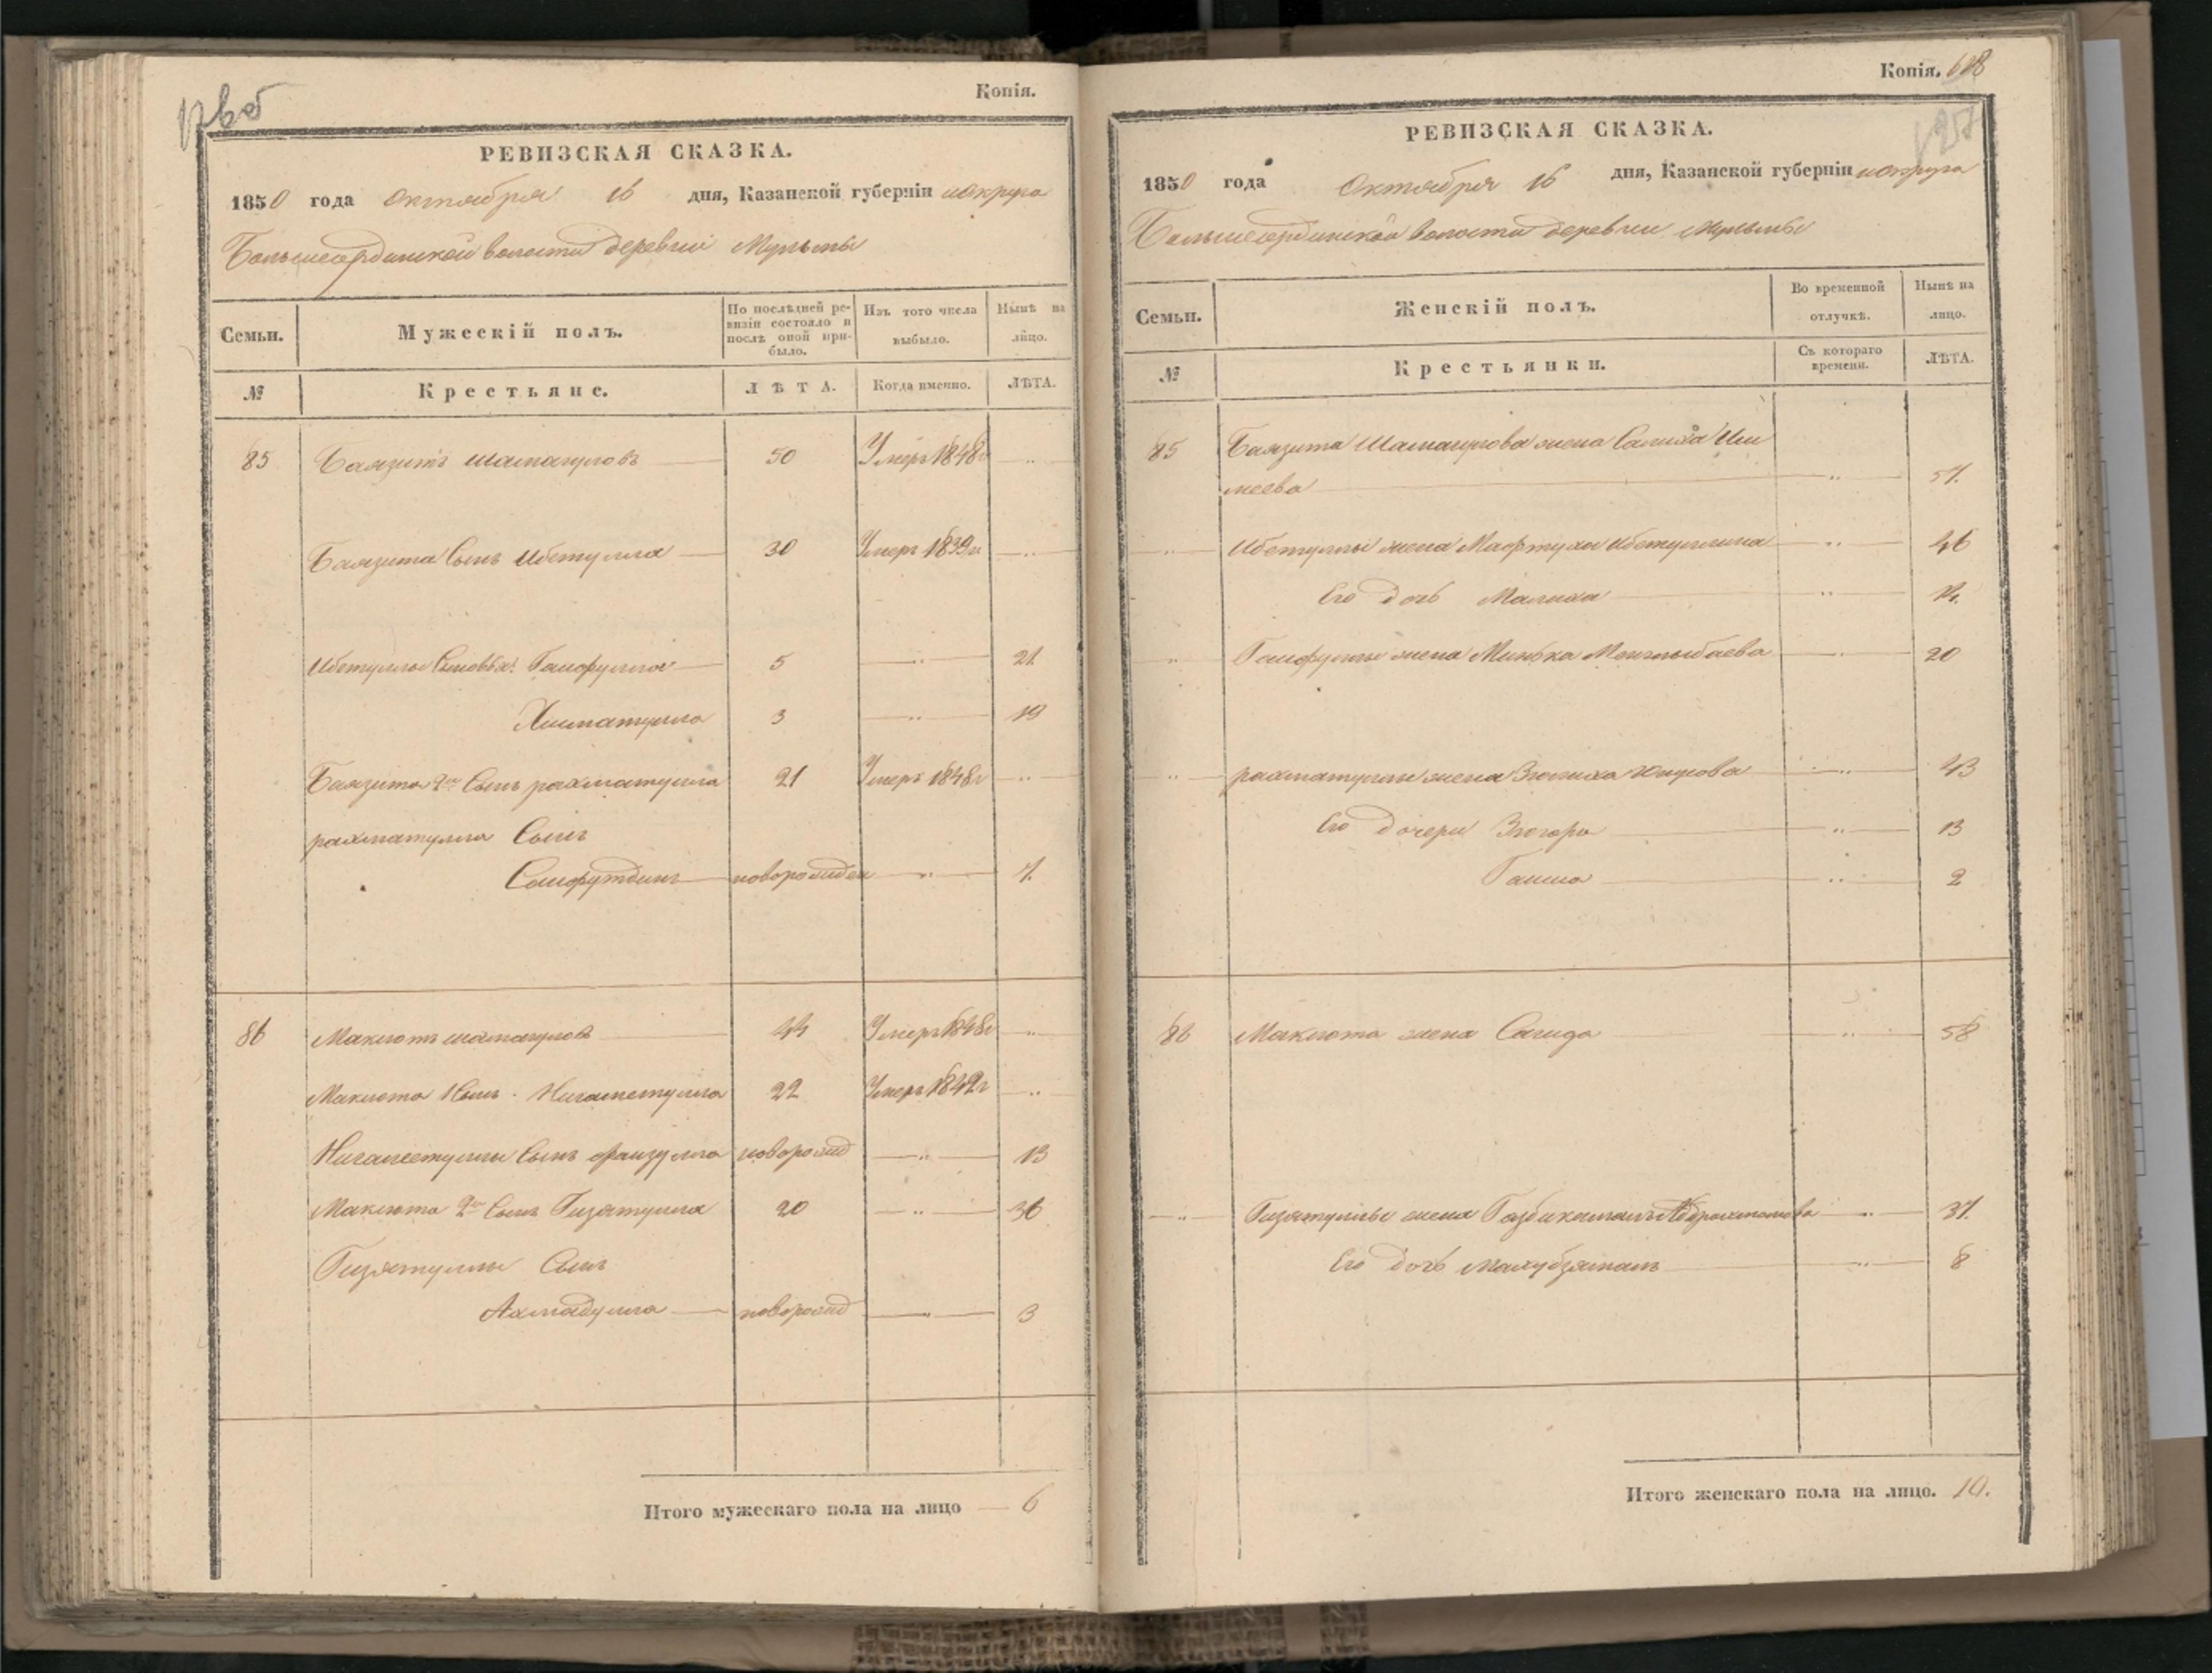 Копія.
РЕВИЗСКАЯ СКАЗКА.
1850 года Октября 16 дня, Казанской губерніи и округа
волости деревни Мульмы
Семьи. Мужескій полъ. По послѣдней ревизіи состояло и послѣ оной прибыло. Изъ того числа выбыло. Нынѣ на лицо.
№ Крестьяне. ЛѢТА. Когда именно. ЛѢТА.
85 Баязитъ Шамагуловъ 50 Умеръ 1848г ..
Баязита Сынъ Ибетулла 30 Умеръ 1839г ..
Ибетуллы Сыновья: Гайфулла 5 .. 21
Хисматулла 3 .. 19
Баязита 2й Сынъ рахматулла 21 Умеръ 1848г ..
рахматулла Сынъ
Сайфутдинъ новорожден .. 7.
86 Макиотъ шамагуловъ 44 Умеръ 1848г ..
Макиота Сынъ Нигаметулла 22 Умеръ 1842г ..
Нигаметуллы Сынъ файзулла новорожд .. 13
Макиота 2й Сынъ Гизятулла 20 .. 36
Гизятуллы Сынъ
Ахмадулла новорожд .. 3
Итого мужескаго пола на лицо 6
Копія. 128
РЕВИЗСКАЯ СКАЗКА.
1850 года Октября 16 дня, Казанской губерніи и округа
волости деревни Мульмы
Семьи. Женскій полъ. Во временной отлучкѣ. Нынѣ на лицо.
№ Крестьянки. Съ котораго времени. ЛѢТА.
85 Баязита Шамагулова жена Салиха Иш
меева .. 57.
.. Ибетуллы жена Мафтуха Ибетуллина .. 46
Его дочь Малика .. 14.
.. Гайфуллы жена Минька Менглыбаева .. 20
.. рахматуллы жена Зюлиха Юнусова .. 43
Его дочери Зюгора .. 13
Гайша .. 2
86 Макиота жена Сагида .. 58
.. Гизятуллы жена Газбикамалъ Абдрахманова .. 37.
Его дочь Махубзяманъ .. 8
Итого женскаго пола на лицо. 10.